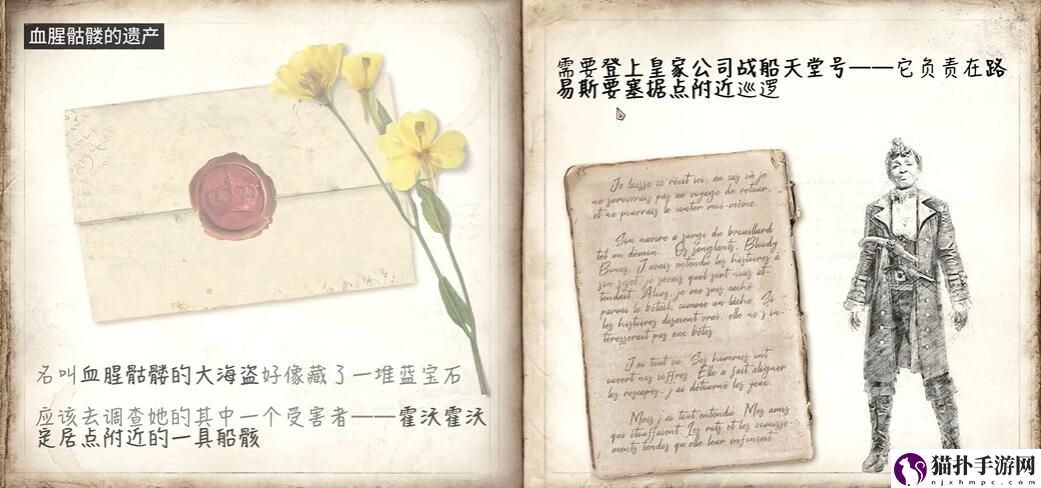 血腥骷髅的遗产
名叫血腥骷髅的大海盗好像藏了一堆蓝宝石
应该去调查她的其中一个受害者——霍沃霍沃
定居点附近的一具船骸
需要登上皇家公司战船天堂号——它负责在路
易斯要塞据点附近巡逻
Je laisse ce récit ici, au cas où je
ne survivrais pas au voyage de retour,
et ne pourrais le conter moi-même.
Son navire a surgi du brouillard
tel un démon... Os sanglants, Bloody
Bones. J'avais entendu les histoires à
son sujet, je savais quel sort nous at-
tendait. Alors, je me suis caché
parmi le bétail, comme un lâche. Si
les histoires disaient vrai, elle ne s'in-
téresserait pas aux bêtes.
J'ai tout vu. Ses hommes ont
ouvert nos coffres. Elle a fait aligner
les rescapés. J'ai détourné les yeux.
Mais j'ai tout entendu. Mes amis
qui étouffaient. Les rots et les vomisse-
ments tandis qu'elle leur enfonçait
猫扑手游网
njxhmpc.com